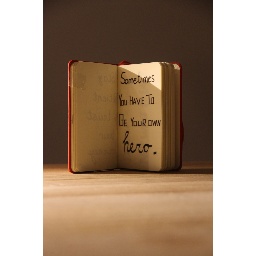 Sometimes
YOU HAVE TO
BE YOUR OWN
hero.